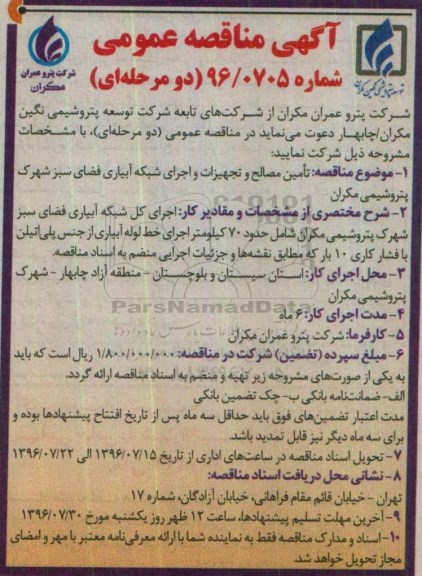 آگهی مناقصه عمومی
شماره ۹۶/۰۷۰۵ (دو مرحله‌ای)
شرکت پترو عمران
مکران
شرکت پترو عمران مکران از شرکت‌های تابعه شرکت توسعه پتروشیمی نگین
مکران/چابهار دعوت می‌نماید در مناقصه عمومی (دو مرحله‌ای)، با مشخصات
مشروحه ذیل شرکت نمایید:
۱- موضوع مناقصه: تأمین مصالح و تجهیزات و اجرای شبکه آبیاری فضای سبز شهرک
پتروشیمی مکران
۲- شرح مختصری از مشخصات و مقادیر کار: اجرای کل شبکه آبیاری فضای سبز
شهرک پتروشیمی مکران شامل حدود ۷۰ کیلومتر اجرای خط لوله آبیاری از جنس پلی‌اتیلن
با فشار کاری ۱۰ بار که مطابق نقشه‌ها و جزئیات اجرایی منضم به اسناد مناقصه.
۳- محل اجرای کار: استان سیستان و بلوچستان - منطقه آزاد چابهار - شهرک
پتروشیمی مکران
۴- مدت اجرای کار: ۶ ماه
۵- کارفرما: شرکت پترو عمران مکران
۶- مبلغ سپرده (تضمین) شرکت در مناقصه: ۱/۸۰۰/۰۰۰/۰۰۰ ریال است که باید
به یکی از صورت‌های مشروحه زیر تهیه و منضم به اسناد مناقصه ارائه گردد.
الف- ضمانت‌نامه بانکی ب- چک تضمین بانکی
مدت اعتبار تضمین‌های فوق باید حداقل سه ماه پس از تاریخ افتتاح پیشنهادها بوده و
برای سه ماه دیگر نیز قابل تمدید باشد.
۷- تحویل اسناد مناقصه در ساعت‌های اداری از تاریخ ۱۳۹۶/۰۷/۱۵ الی ۱۳۹۶/۰۷/۲۲
۸- نشانی محل دریافت اسناد مناقصه:
تهران - خیابان قائم مقام فراهانی، خیابان آزادگان، شماره ۱۷
۹- آخرین مهلت تسلیم پیشنهادها، ساعت ۱۲ ظهر روز یکشنبه مورخ ۱۳۹۶/۰۷/۳۰
۱۰- اسناد و مدارک مناقصه فقط به نماینده شما با ارائه معرفی‌نامه معتبر با مهر و امضای
مجاز تحویل خواهد شد.
ParsNamadData